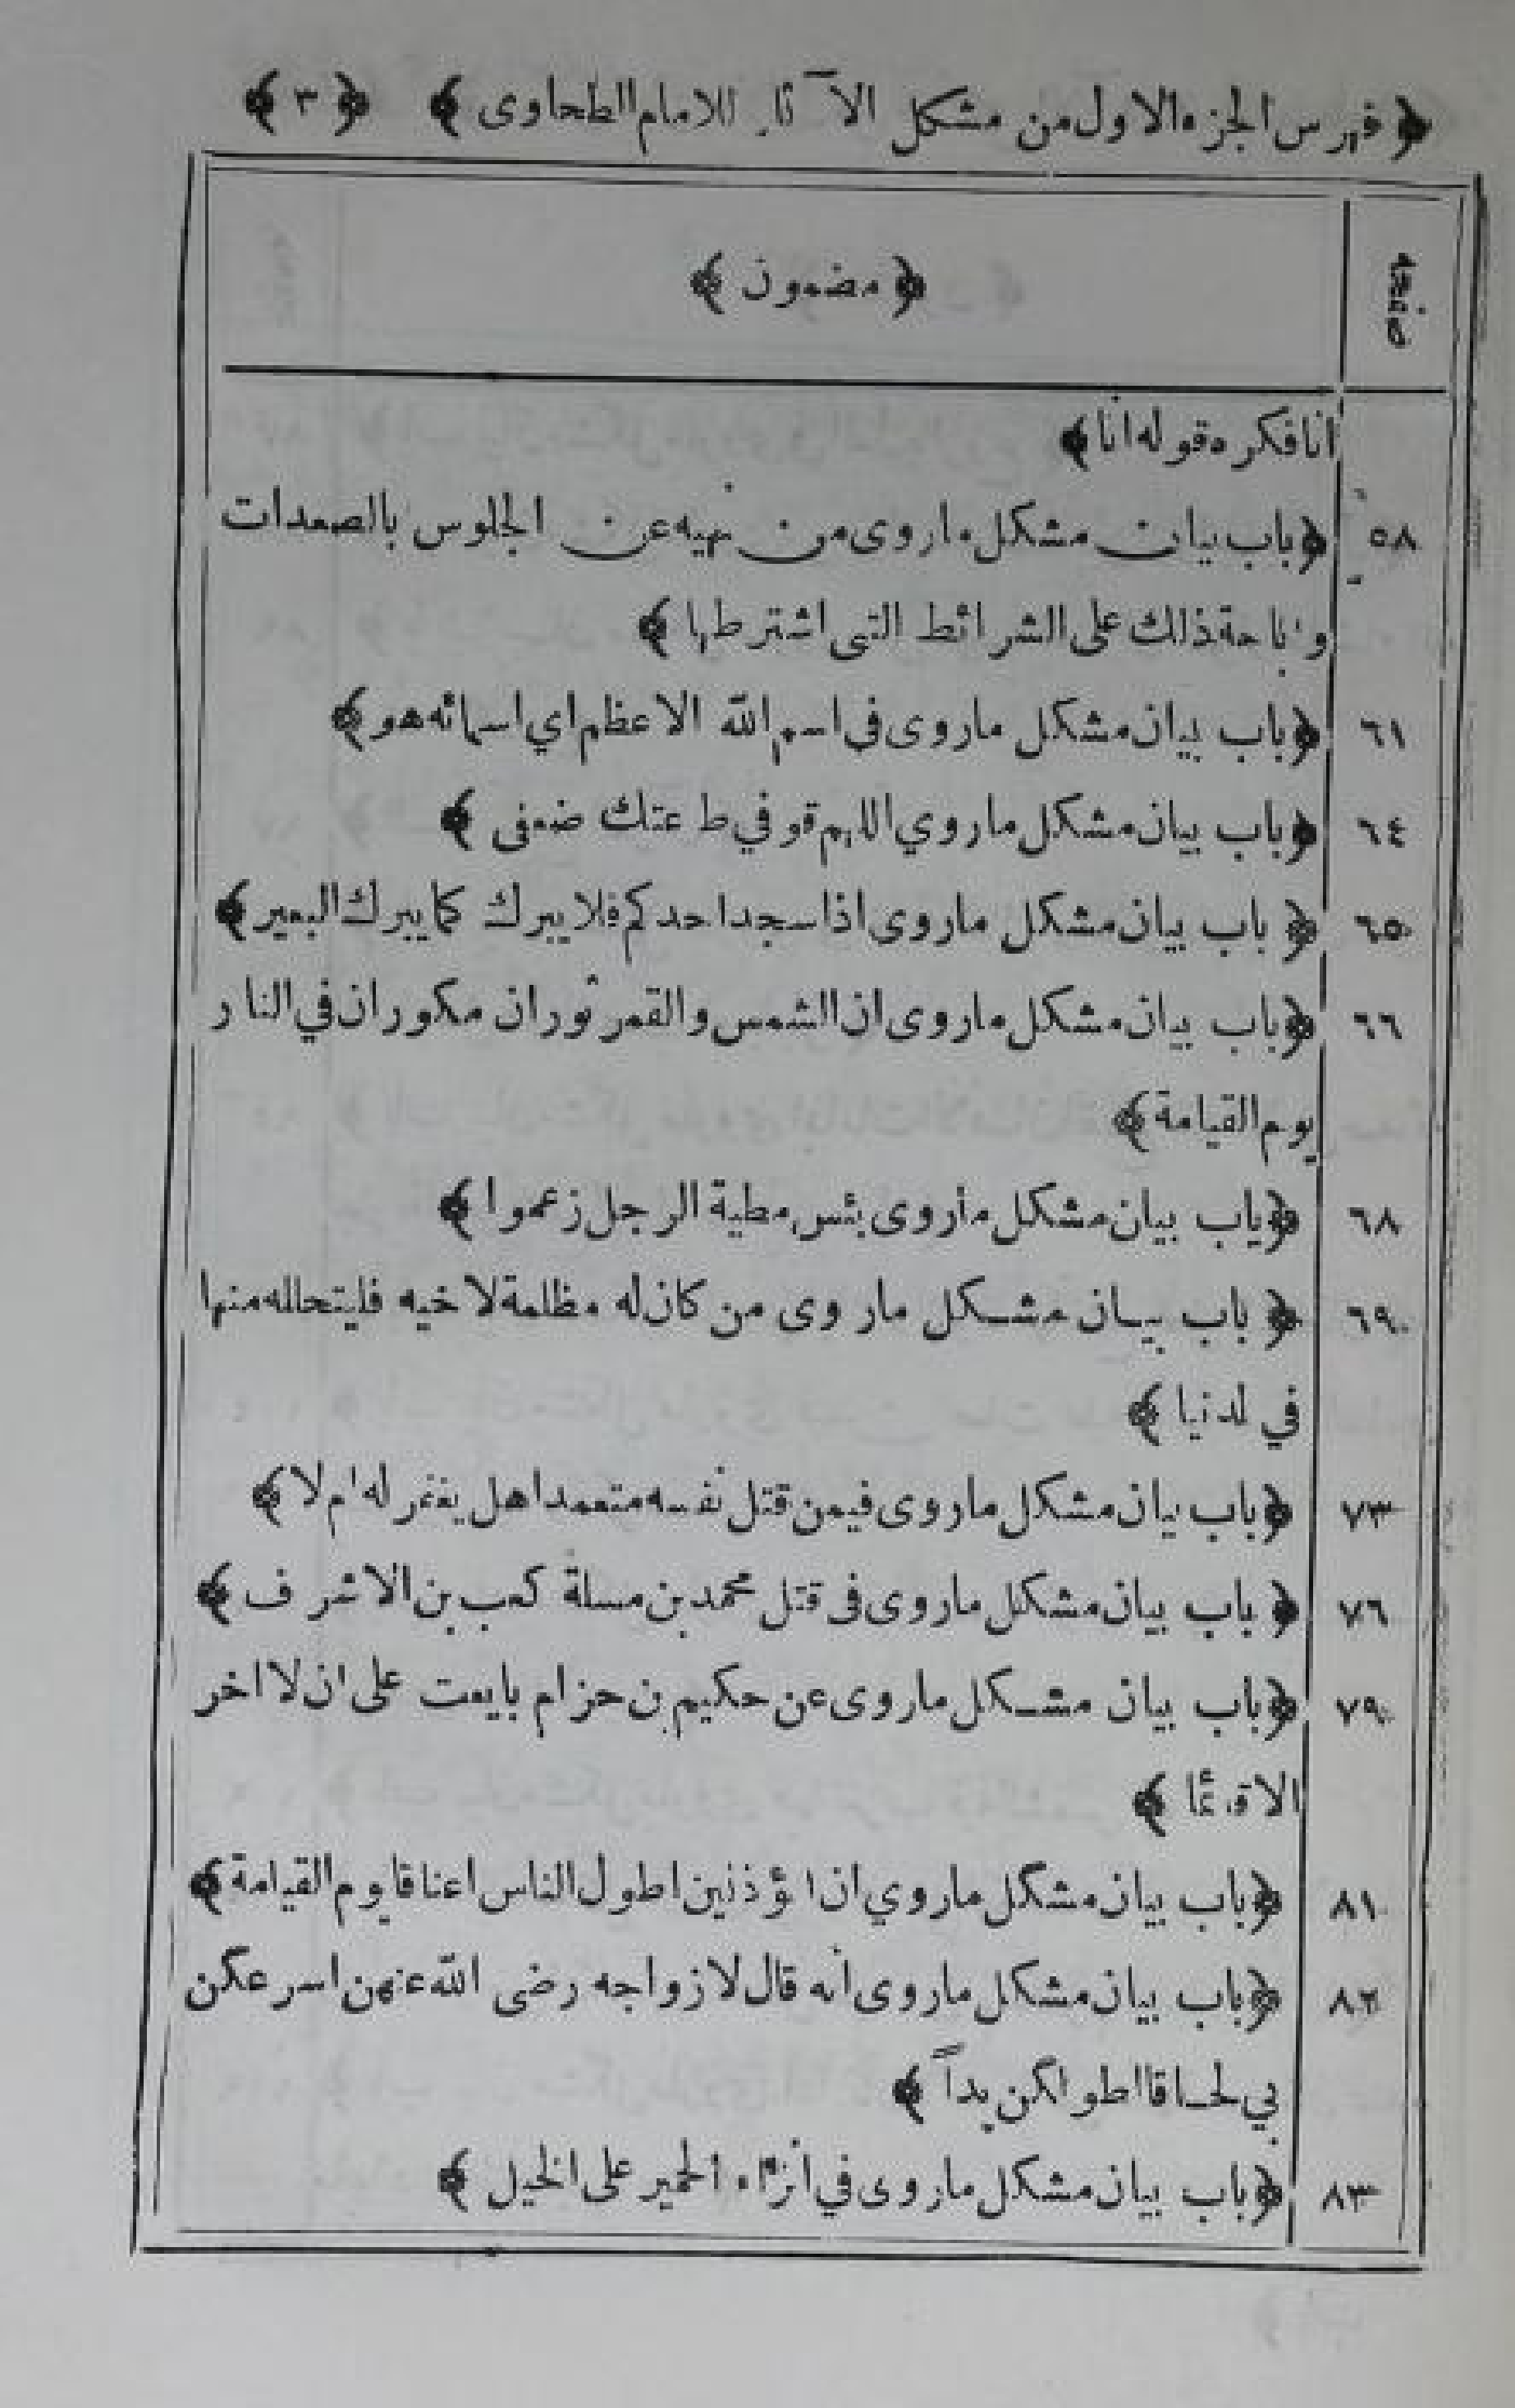 ﴿ فهرس الجزء الاول من مشكل الآثار للامام الطحاوى ﴾ ﴿ ٣ ﴾
صفحه ﴿ مضمون ﴾
انا فكره قوله انا ﴾
٥٨ ﴿ باب بيان مشكل ماروى من نهيه عن الجلوس بالصعدات
واباحة ذلك على الشرائط التى اشترطها ﴾
٦١ ﴿ باب بيان مشكل ماروى فى اسم الله الاعظم اي اسمائه هو ﴾
٦٤ ﴿ باب بيان مشكل ماروي اللهم قو في طاعتك ضعفى ﴾
٦٥ ﴿ باب بيان مشكل ماروى اذا سجد احدكم فلا يبرك كما يبرك البعير ﴾
٦٦ ﴿ باب بيان مشكل ماروى ان الشمس والقمر ثوران مكوران في النار
يوم القيامة ﴾
٦٨ ﴿ باب بيان مشكل ماروى بئس مطية الرجل زعموا ﴾
٦٩ ﴿ باب بيان مشكل ماروى من كان له مظلمة لاخيه فليتحلله منها
في لدنيا ﴾
٧٣ ﴿ باب بيان مشكل ماروى فيمن قتل نفسه متعمدا هل يغفر له ام لا ﴾
٧٦ ﴿ باب بيان مشكل ماروى فى قتل محمد بن مسلة كعب بن الاشرف ﴾
٧٩ ﴿ باب بيان مشكل ماروى عن حكيم بن حزام بايعت على ان لا اخر
الا قائما ﴾
٨١ ﴿ باب بيان مشكل ماروي ان المؤذنين اطول الناس اعناقا يوم القيامة ﴾
٨٢ ﴿ باب بيان مشكل ماروى انه قال لازواجه رضى الله عنهن اسرعكن
بي لحاقا اطولكن يداً ﴾
٨٣ ﴿ باب بيان مشكل ماروى في انزاء الحمير على الخيل ﴾